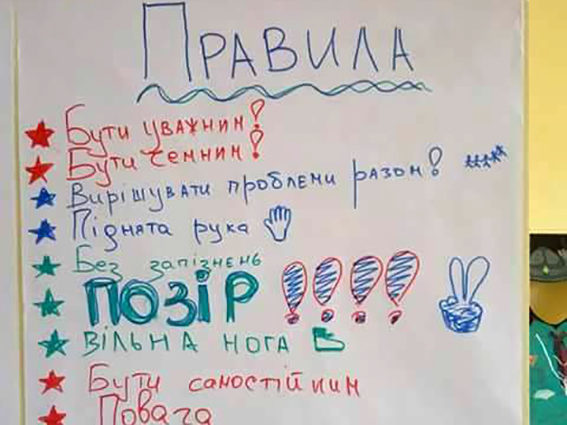 Правила
Бути уважним!
Бути чемним!
Вирішувати проблеми разом!
Піднята рука
Без запізнень
ПОЗІР !!!!
ВІЛЬНА НОГА
Бути самостійним
Повага